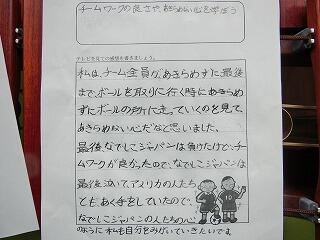 チームワークの良さや、あきらめない心を学ぼう
テレビを見ての感想を書きましょう。
私は、チーム全員が、あきらめずに最後
まで、ボールを取りに行く時にあきらめ
ずにボールの所に走っていくのを見て、
あきらめない心だなと思いました。
最後なでしこジャパンは負けたけど、チー
ムワークが良かったので、なでしこジャパンは
最後泣いて、アメリカの人たち
とも、あく手をしていたので、
なでしこジャパンの人たちの心
のように私も自分をみがいていきたいです
10